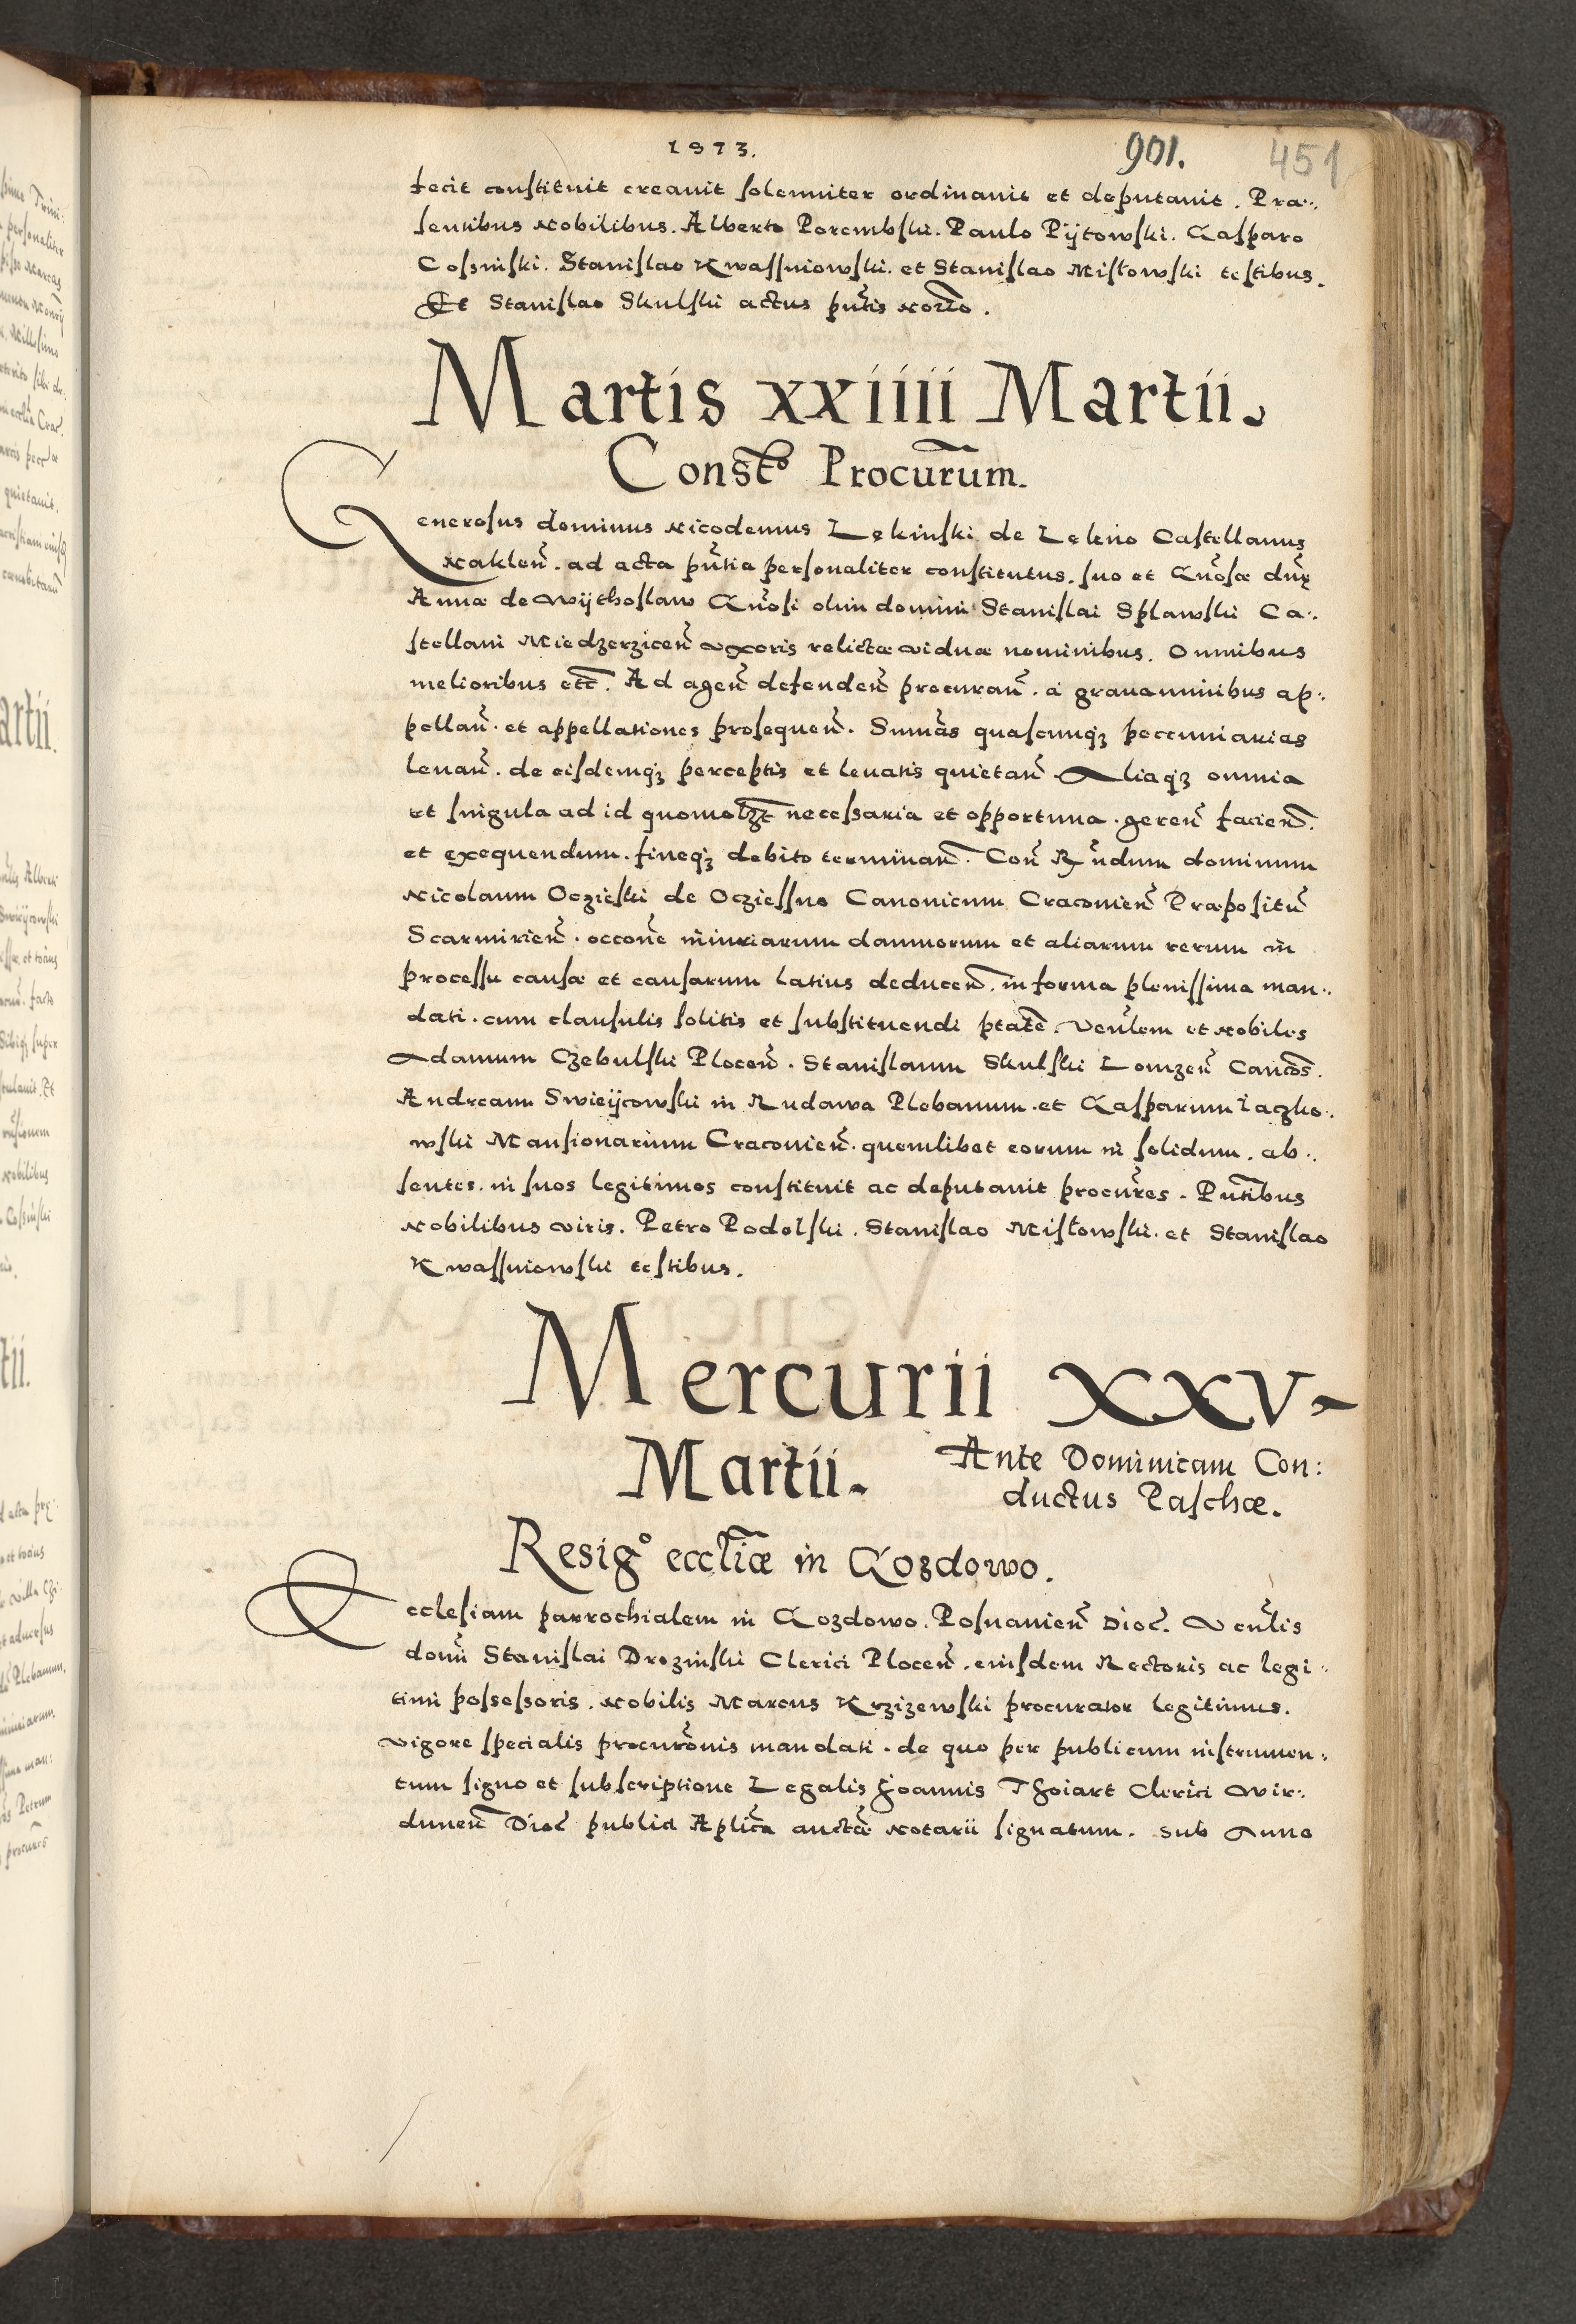 1573.
901.
451
fecit constituit creauit solenniter ordinauit et deputauit. Præ:,
sentibus Nobilibus. Alberto Porembski. Paulo Pijtowski. Gasparo
Cossinski. Stanislao Kwassniowski. et Stanislao Mistowski testibus.
Et Stanislao Skulski actus pñtis Norio.
Martis xxiiii Martii.
Constᵒ Procurum.
Generosus dominus Nicodemus Lekinski de Lekno Castellanus
Naklen̄. ad acta pñtia personaliter constitutus. suo et Gnosæ dnæ
Annæ de Wijthoslaw Gnosi olim domini Stanislai Splawski Ca:.
stellani Miedzerzicen̄ uxoris relictæ uiduæ nominibus. Omnibus
melioribus etc̄. Ad agen̄ defenden̄ procuran̄. a grauaminibus ap:,
pellan̄. et appellationes prosequen̄. Sum̄as quascunq; peccuniarias
leuan̄. de eisdemq; perceptis et leuatis quietan̄ Aliaq; omnia
et singula ad id quomolzt necessaria et opportuna. geren̄ facien̄.
et exequendum. fineq; debito terminan̄. Con̄ Rndum dominum
Nicolaum Oczieski de Ocziessno Canonicum Cracouien̄ Præpositū
Scarmirien̄. occone iniuriarum damnorum et aliarum rerum in
processu causæ et causarum latius deducen̄. in forma plenissima man:.
dati. cum clausulis solitis et substituendi ptate. Venlem et Nobiles
Adamum Czebulski Plocen̄. Stanislaum Skulski Lomzen̄ Cancos.
Andream Swieijcowski in Rudawa Plebanum. et Gasparum Laczko:.
wski Mansionarium Cracouien̄. quemlibet eorum in solidum. ab:.
sentes. in suos legitimos constituit ac deputauit procures. Pntibus
Nobilibus uiris. Petro Podolski. Stanislao Mistowski. et Stanislao
Kwassniowski testibus.
Mercurii XXV
Martii. Ante Dominicam Con:
ductus Paschæ.
Resigᵒ eccliæ in Gozdowo.
Ecclesiam parrochialem in Gozdowo. Posnanien̄ Dioc̄. Venlis
domi Stanislai Drozinski Clerici Plocen̄. eiusdem Rectoris ac legi:
timi possessoris. Nobilis Marcus Krzizewski procurator legitimus.
uigore specialis procuronis mandati. de quo per publicum instrumen:.
tum signo et subscriptione Legalis Joannis Thoiart Clerici Vir:.
dunen̄ Dioc̄ publici Aplica auctæ Notarii signatum. sub Anno